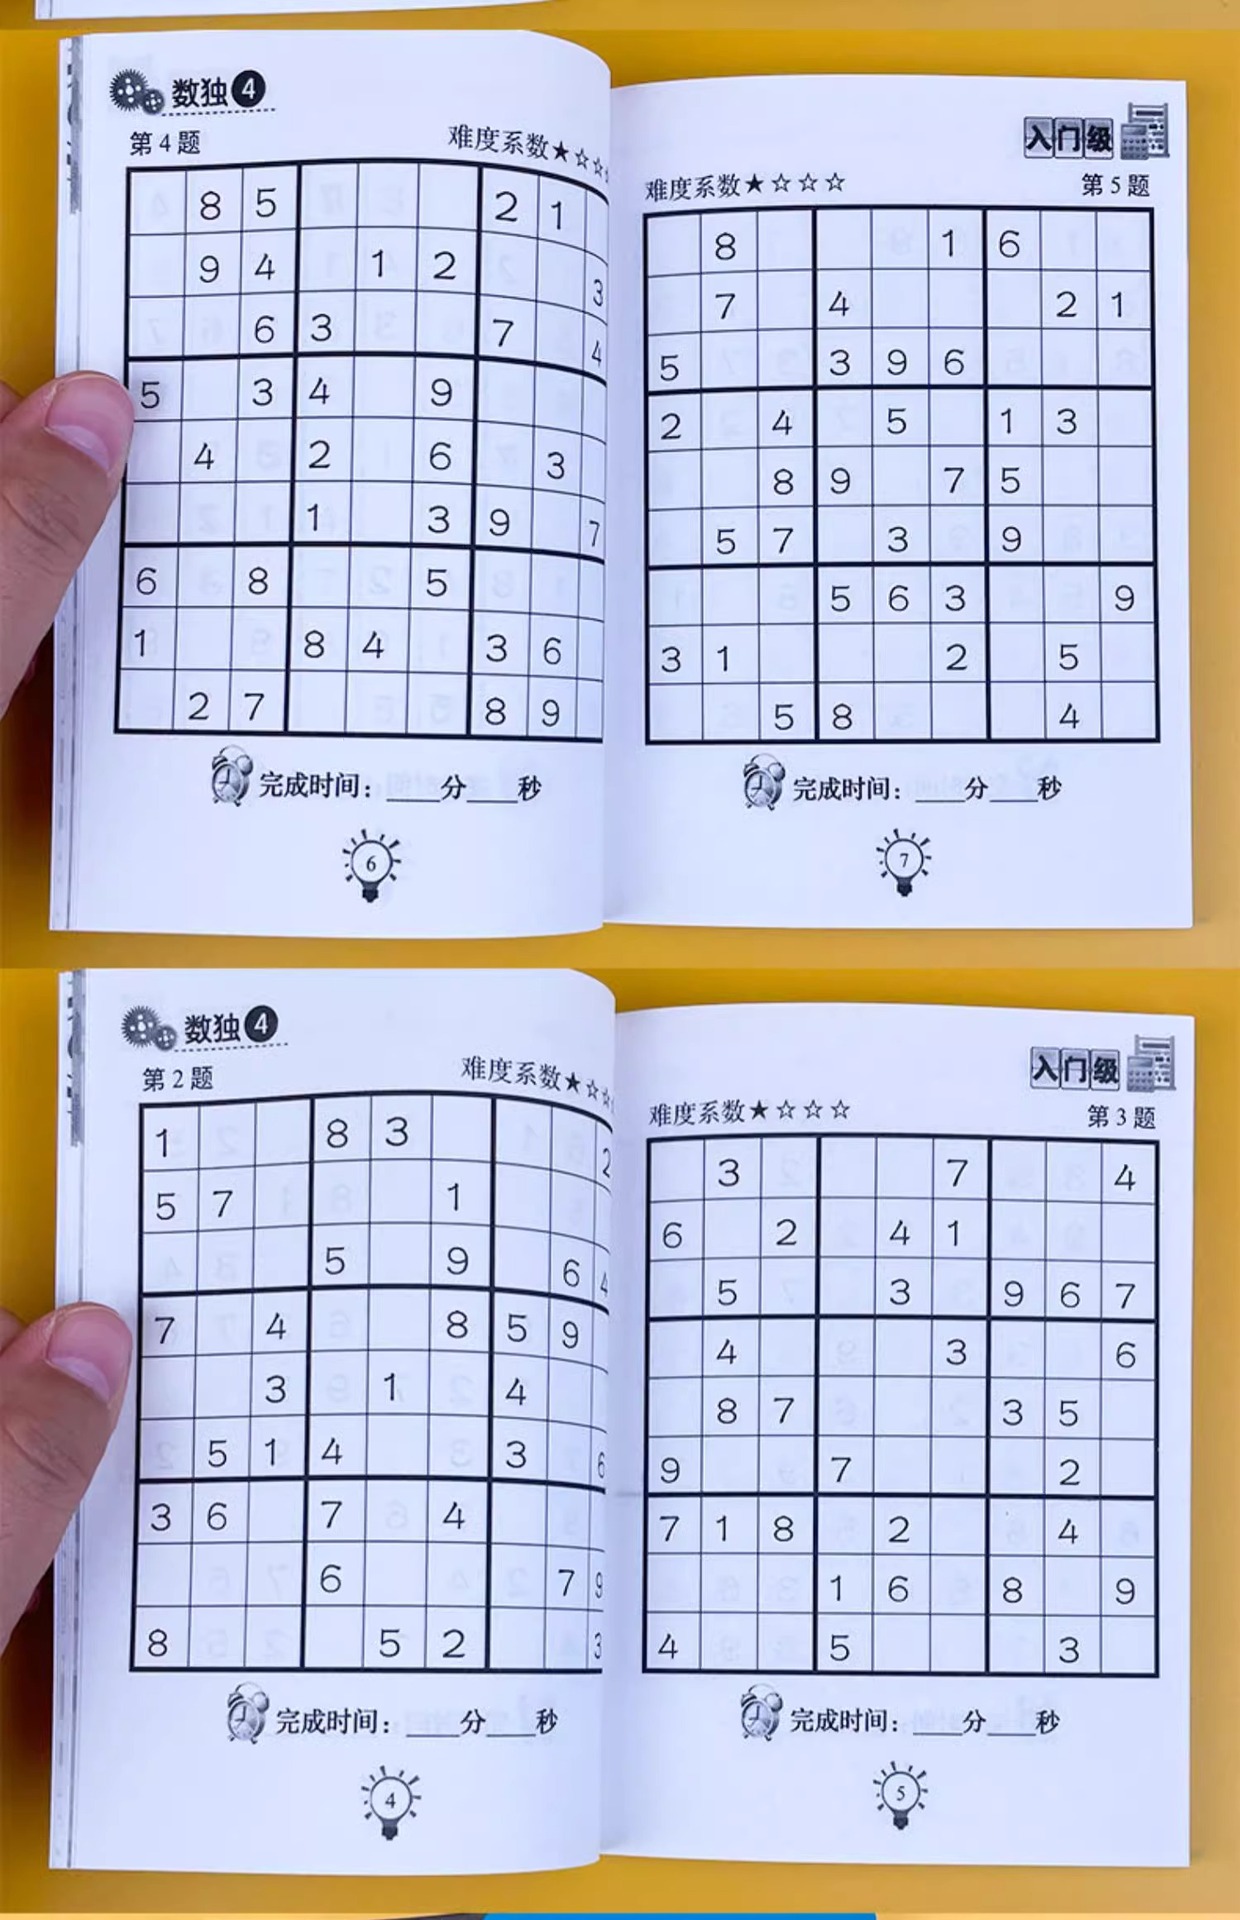 数独 4
第4题 难度系数★☆☆
8 5 2 1
9 4 1 2 3
6 3 7 4
5 3 4 9
4 2 6 3
1 3 9 7
6 8 5
1 8 4 3 6
2 7 8 9
完成时间：____分____秒
6
入门级
难度系数★☆☆☆ 第5题
8 1 6
7 4 2 1
5 3 9 6
2 4 5 1 3
8 9 7 5
5 7 3 9
5 6 3 9
3 1 2 5
5 8 4
完成时间：____分____秒
7
数独 4
第2题 难度系数★☆☆
1 8 3 2
5 7 1
5 9 6 4
7 4 8 5 9
3 1 4
5 1 4 3 6
3 6 7 4
6 7 9
8 5 2 3
完成时间：____分____秒
4
入门级
难度系数★☆☆☆ 第3题
3 7 4
6 2 4 1
5 3 9 6 7
4 3 6
8 7 3 5
9 7 2
7 1 8 2 4
1 6 8 9
4 5 3
完成时间：____分____秒
5